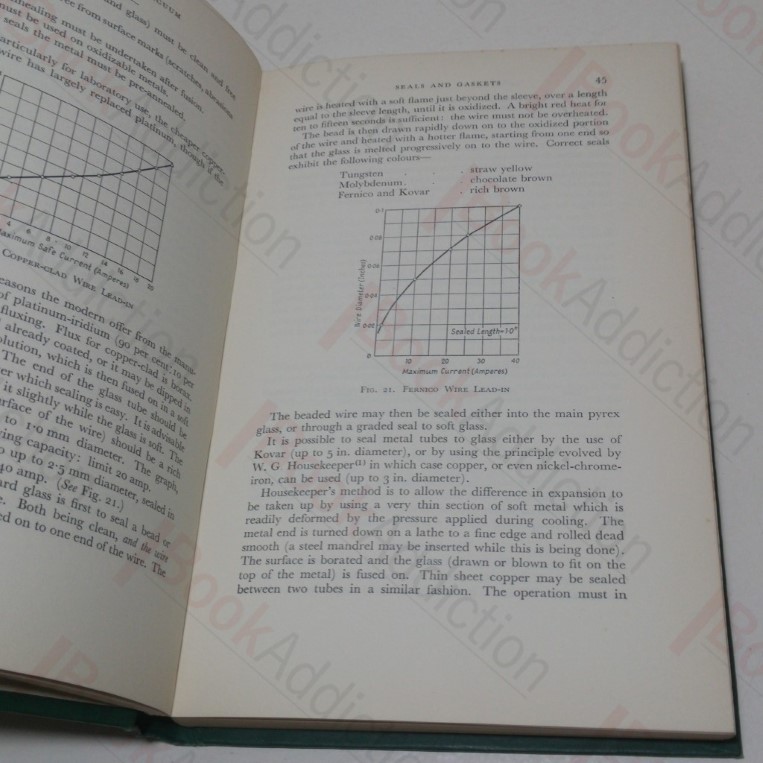 VACUUM
and glass) must be clean and free
from surface marks (scratches, abrasions
annealing must be undertaken after fusion.
must be used on oxidizable metals.
seals the metal must be pre-annealed.
particularly for laboratory use, the cheaper copper-
wire has largely replaced platinum, though if the
4 6 8 10 12 14 16 18 20
Maximum Safe Current (Amperes)
COPPER-CLAD WIRE LEAD-IN
reasons the modern offer from the manu-
of platinum-iridium (90 per cent: 10 per
fluxing. Flux for copper-clad is borax.
already coated, or it may be dipped in
solution, which is then fused on in a soft
The end of the glass tube should be
after which sealing is easy. It is advisable
it slightly while the glass is soft. The
surface of the wire) should be a rich
to 1·0 mm diameter. The graph,
carrying capacity: limit 20 amp.
up to 2·5 mm diameter, sealed in
40 amp. (See Fig. 21.)
hard glass is first to seal a bead or
Both being clean, and the wire
ed on to one end of the wire. The
SEALS AND GASKETS 45
wire is heated with a soft flame just beyond the sleeve, over a length
equal to the sleeve length, until it is oxidized. A bright red heat for
ten to fifteen seconds is sufficient: the wire must not be overheated.
The bead is then drawn rapidly down on to the oxidized portion
of the wire and heated with a hotter flame, starting from one end so
that the glass is melted progressively on to the wire. Correct seals
exhibit the following colours—
Tungsten . . straw yellow
Molybdenum . . chocolate brown
Fernico and Kovar . rich brown
0·1
0·08
0·06
0·04
0·02
0
Wire Diameter (Inches)
Sealed Length=1·0"
10 20 30 40
Maximum Current (Amperes)
FIG. 21. FERNICO WIRE LEAD-IN
The beaded wire may then be sealed either into the main pyrex
glass, or through a graded seal to soft glass.
It is possible to seal metal tubes to glass either by the use of
Kovar (up to 5 in. diameter), or by using the principle evolved by
W. G. Housekeeper(1) in which case copper, or even nickel-chrome-
iron, can be used (up to 3 in. diameter).
Housekeeper's method is to allow the difference in expansion to
be taken up by using a very thin section of soft metal which is
readily deformed by the pressure applied during cooling. The
metal end is turned down on a lathe to a fine edge and rolled dead
smooth (a steel mandrel may be inserted while this is being done).
The surface is borated and the glass (drawn or blown to fit on the
top of the metal) is fused on. Thin sheet copper may be sealed
between two tubes in a similar fashion. The operation must in
BookAddiction